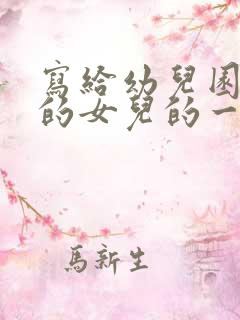 寫給幼兒園
的女兒的一
馬新生